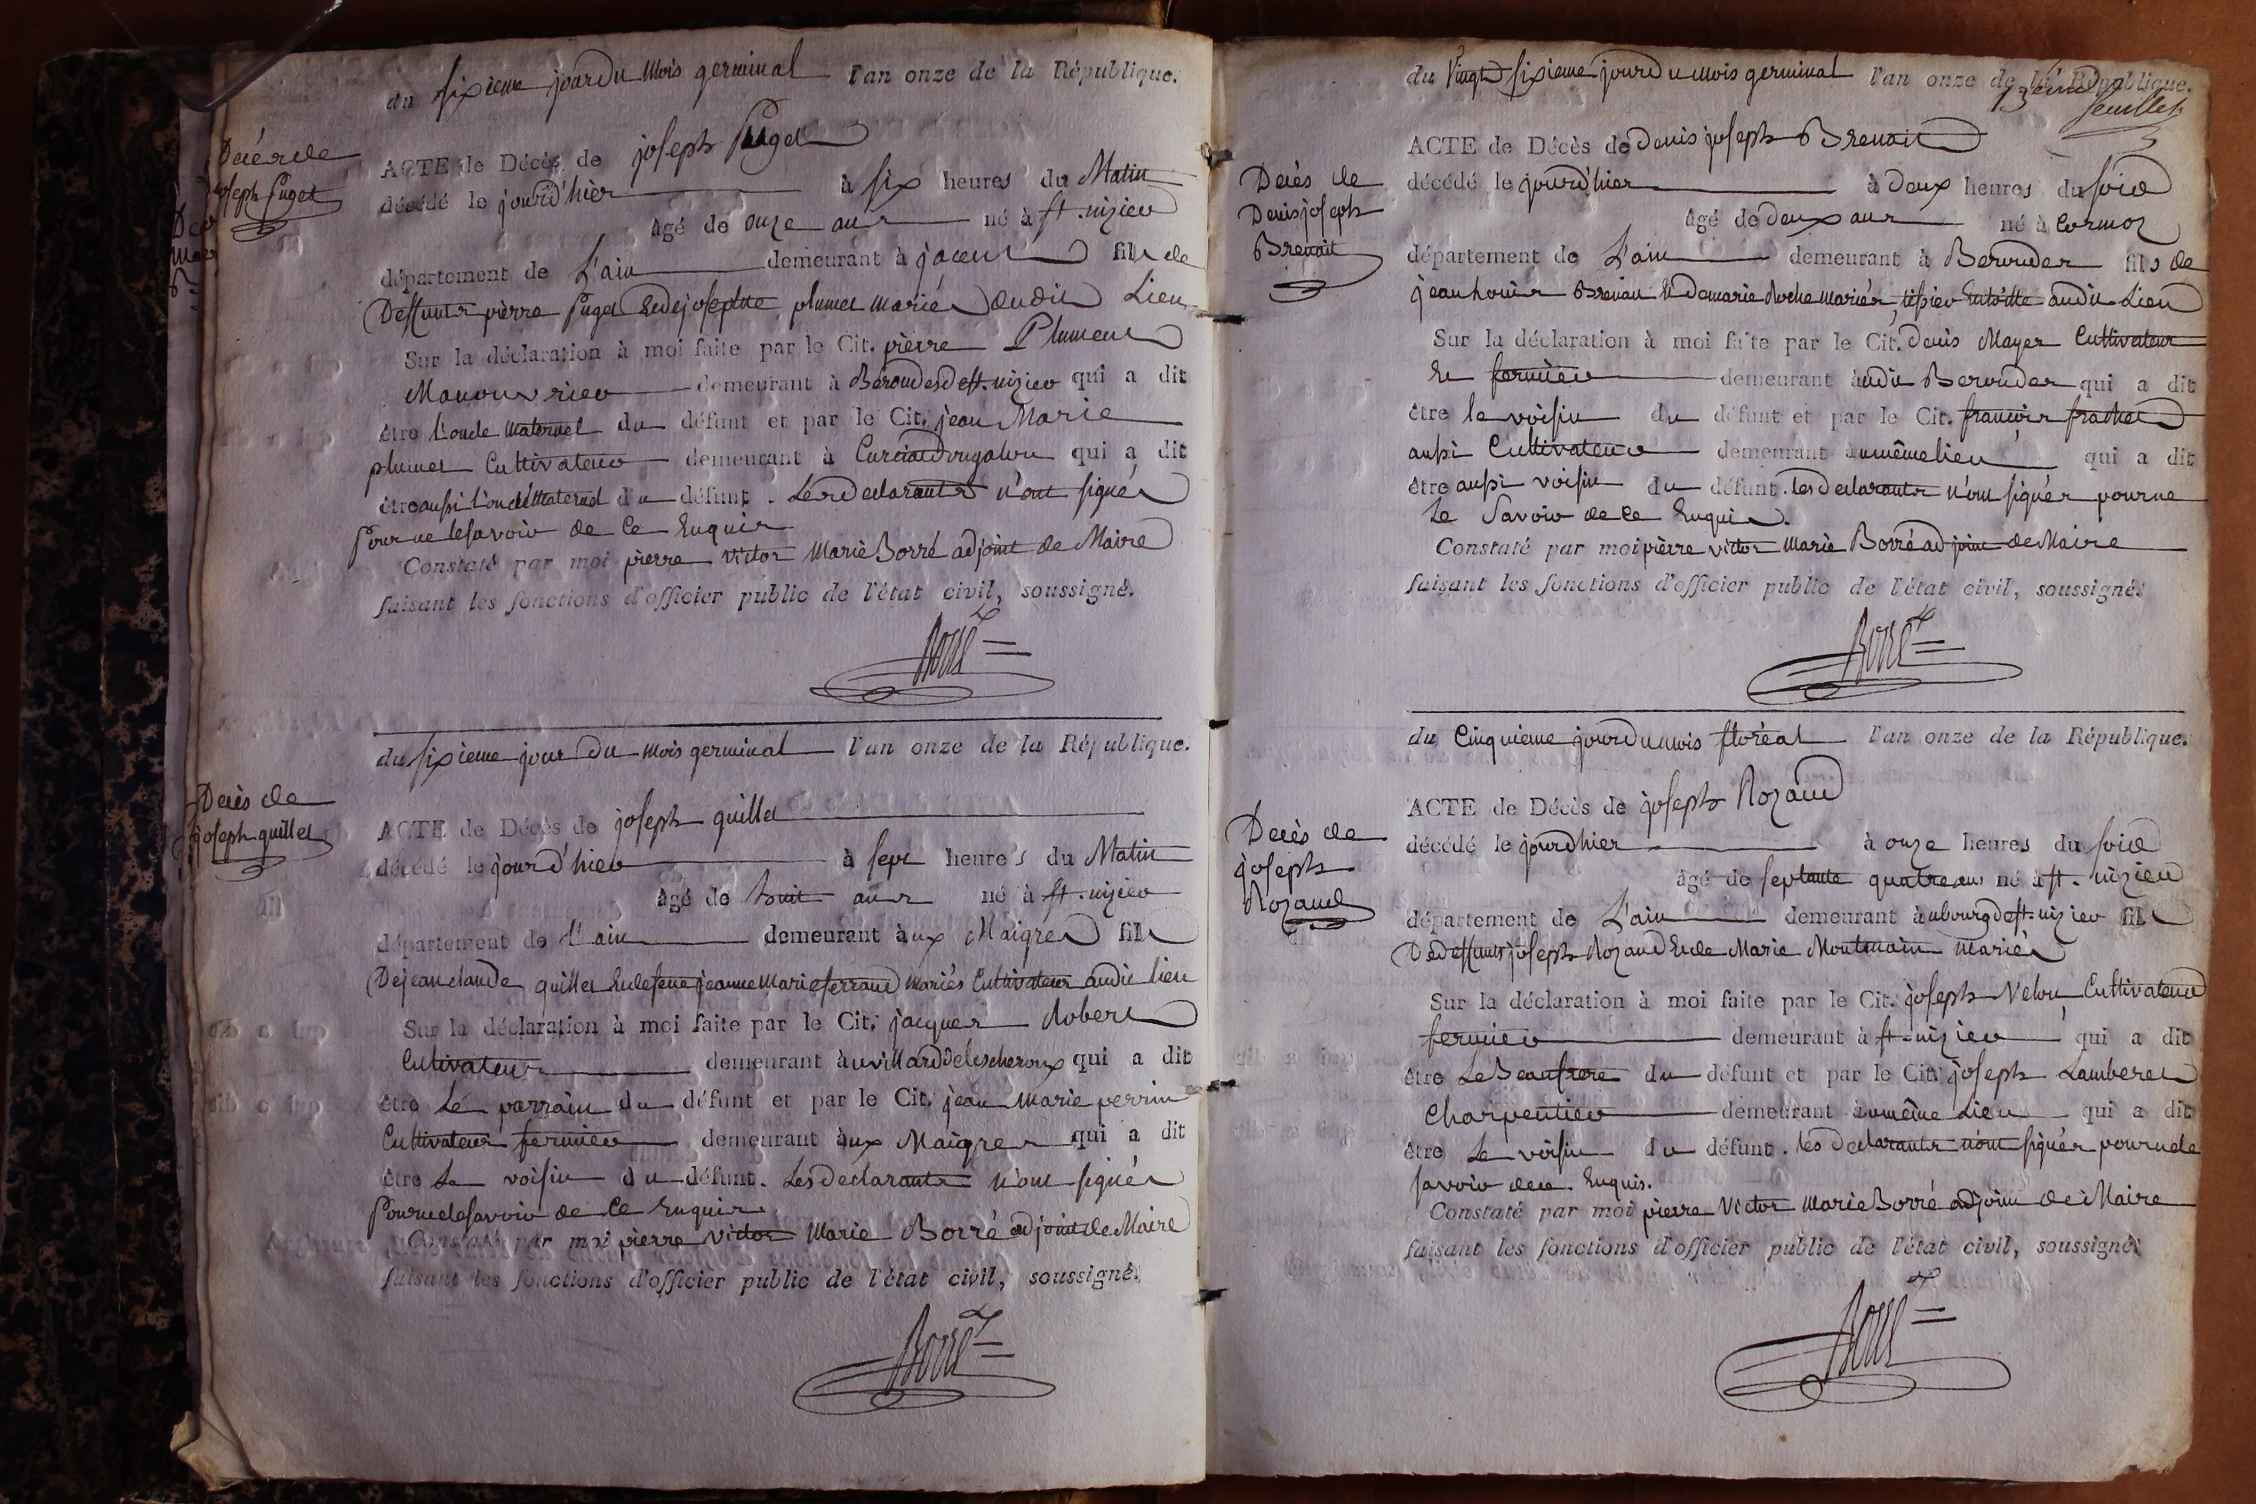 du sixieme jour du mois germinal l'an onze de la République.
Décès de
joseph Puget
ACTE de Décès de joseph Puget
décédé le jourd'hier à six heures du Matin
âgé de onze ans né à st. nizier
département de L'ain demeurant à fils de
Deffunts pierre Puget et de josephte plumet mariés dudit Lieu
Sur la déclaration à moi faite par le Cit. pierre Plumet
Manouvrier demeurant à Beroudes de st. nizier qui a dit
être l'oncle maternel du défunt et par le Cit. jean Marie
plumet Cultivateur demeurant à Curciat dongalon qui a dit
être aussi l'oncle Maternel du défunt. Les declarants n'ont signés
Pour ne le savoir de ce Enquis
Constaté par moi pierre victor Marie Borré adjoint de Maire
faisant les fonctions d'officier public de l'état civil, soussigné.
Borré
du sixieme jour du mois germinal l'an onze de la République.
Décès de
joseph quillet
ACTE de Décès de joseph quillet
décédé le jourd'hier à sept heures du Matin
âgé de huit ans né à st. nizier
département de l'ain demeurant aux Maigres fils
De jean claude quillet et de feue jeanne Marie ferrand Mariés Cultivateurs audit lieu
Sur la déclaration à moi faite par le Cit. jacques Robert
Cultivateur demeurant au villard delescheroux qui a dit
être Le parrain du défunt et par le Cit. jean Marie perrin
Cultivateur fermier demeurant aux Maigres qui a dit
être Le voisin du défunt. Les declarants n'ont signés
Pour ne le savoir de ce enquis
Constaté par moi pierre victor Marie Borré adjoint de Maire
faisant les fonctions d'officier public de l'état civil, soussigné.
Borré
du Vingt sixieme jour du mois germinal l'an onze de la République.
feuillet
Décès de
Denis joseph
Brevait
ACTE de Décès de denis joseph Brevait
décédé le jourd'hier à deux heures du soir
âgé de deux ans né à Cormoz
département de L'ain demeurant à Beroudes fils de
jean louis et de marie Roche mariés audit Lieu
Sur la déclaration à moi faite par le Cit. denis Mayer Cultivateur
et fermier demeurant audit Beroudes qui a dit
être le voisin du défunt et par le Cit. francois frachet
aussi Cultivateur demeurant au même lieu qui a dit
être aussi voisin du défunt. les declarants n'ont signés pour ne
Le Savoir de ce Enquis.
Constaté par moi pierre victor Marie Borré adjoint de Maire
faisant les fonctions d'officier public de l'état civil, soussigné.
Borré
du Cinquieme jour du mois floréal l'an onze de la République.
Décès de
joseph
Rozand
ACTE de Décès de joseph Rozand
décédé le jourd'hier à onze heures du soir
âgé de septante quatre ans né à st. nizier
département de L'ain demeurant au bourg de st. nizier fils
De deffunts joseph Rozand et de Marie Montmain mariés
Sur la déclaration à moi faite par le Cit. joseph Velon Cultivateur
fermier demeurant à st. nizier qui a dit
être Le Beaufrere du défunt et par le Cit. joseph Lambert
Charpentier demeurant au même Lieu qui a dit
être Le voisin du défunt. les declarants n'ont signés pour ne le
savoir de ce Enquis.
Constaté par moi pierre Victor Marie Borré adjoint de Maire
faisant les fonctions d'officier public de l'état civil, soussigné.
Borré